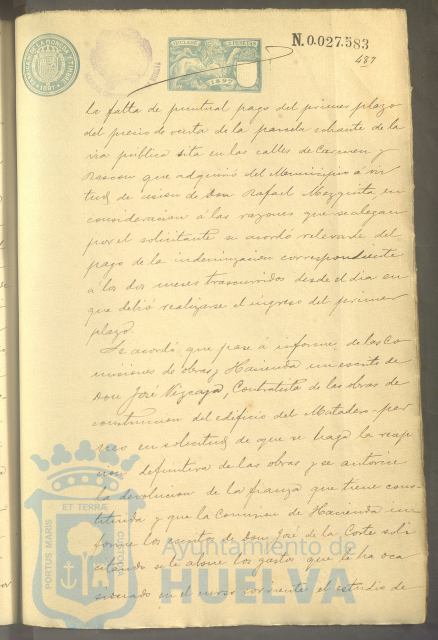 N.0.027.583
487
1897
la falta de puntual pago del primer plazo
del precio de venta de la parcela sobrante de la
via publica sita en las calles de Carmen y
Rascon que adquirió del Municipio á vir
tud de cesion de Don Rafael Mezquita en
consideracion á las razones que se alegan
por el solicitante se acordó relevarle del
pago de la indemnizacion correspondiente
á los dos meses trascurridos desde el dia en
que debió realizarse el ingreso del primer
plazo.
Se acordó que pase á informe de las Co
misiones de obras y Hacienda un escrito de
Don José Vizcaya, Contratista de las obras de
construccion del edificio del Matadero
en solicitud de que se haga la recep
definitiva de las obras y se autorice
la devolucion de la fianza que tiene cons
tituida y que la Comision de Hacienda in
forme los escritos de Don José de la Corte soli
citando se le abone los gastos que le ha oca
sionado en el curso corriente el estudio de
PORTUS MARIS ET TERRÆ CUSTODIA
Ayuntamiento de
HUELVA